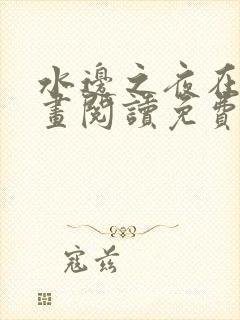 水邊之夜在
畫閱讀免費
寇茲